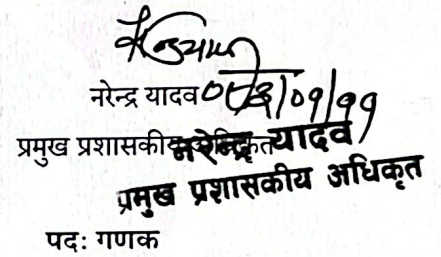 नरेन्द्र यादव
प्रमुख प्रशासकीय
नरेन्द्र यादव
प्रमुख प्रशासकीय अधिकृत
पदः गणक